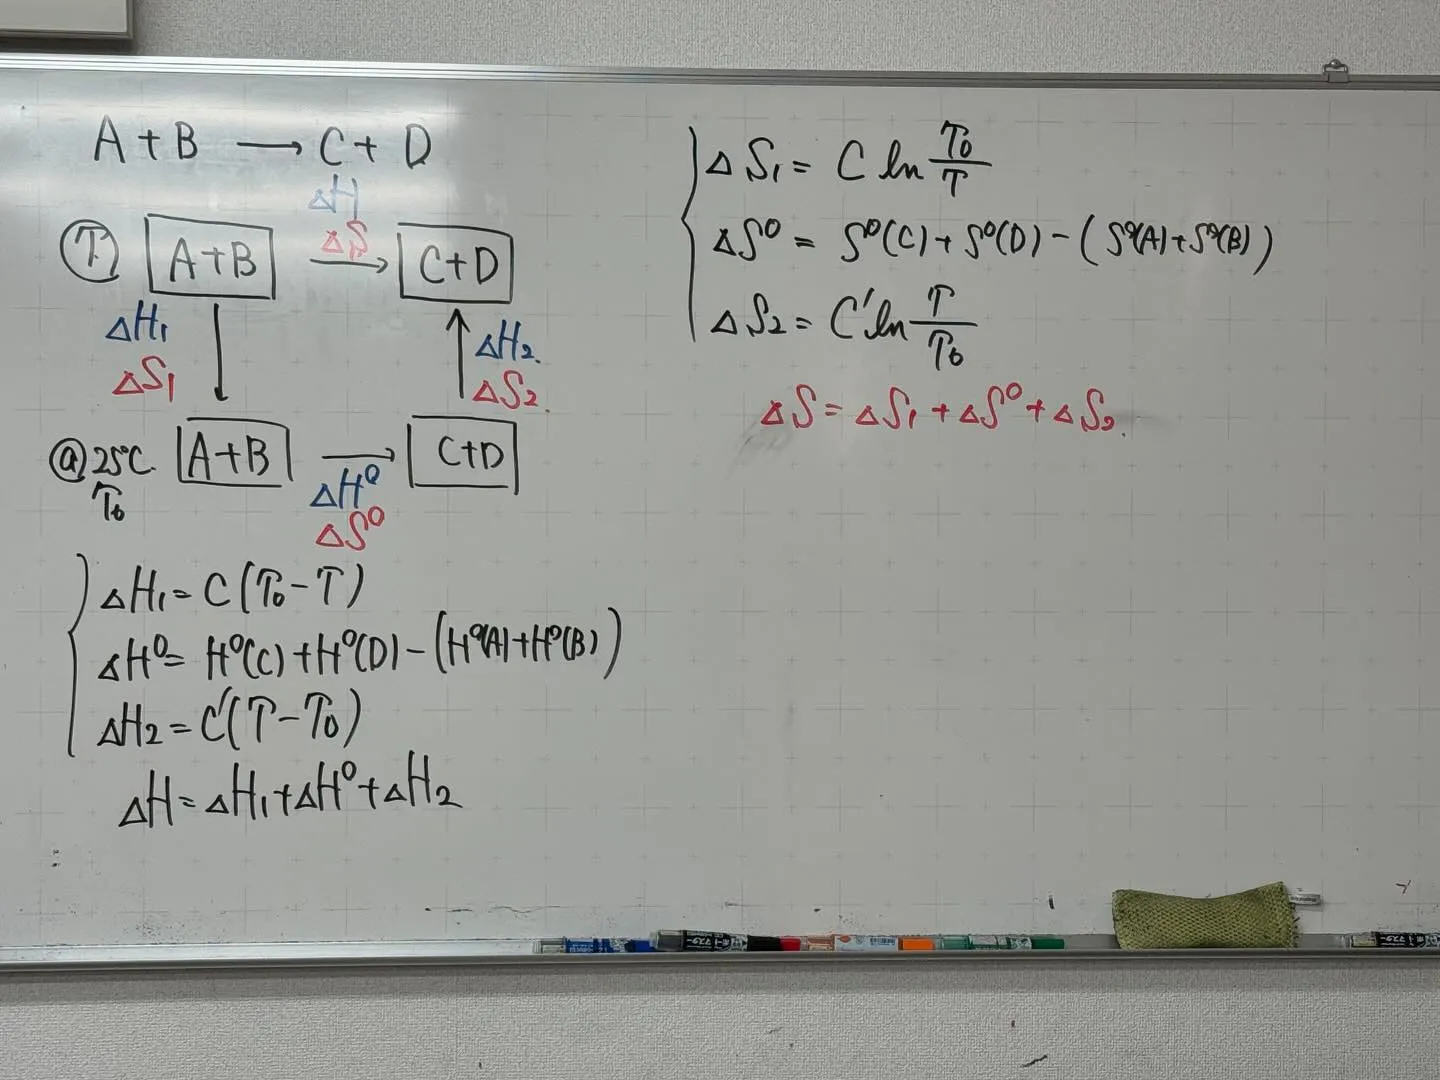 A + B ⟶ C + D
ΔH
ΔS
Ⓣ A+B ⟶ C+D
ΔH₁
ΔS₁
ΔH₂.
ΔS₂.
@25℃ A+B ⟶ C+D
T₀
ΔH⁰
ΔS⁰
ΔH₁ = C(T₀-T)
ΔH⁰ = H⁰(C)+H⁰(D)-(H⁰(A)+H⁰(B))
ΔH₂ = C'(T-T₀)
ΔH = ΔH₁+ΔH⁰+ΔH₂
ΔS₁ = C ln T₀/T
ΔS⁰ = S⁰(C)+S⁰(D)-(S⁰(A)+S⁰(B))
ΔS₂ = C' ln T/T₀
ΔS = ΔS₁+ΔS⁰+ΔS₂.